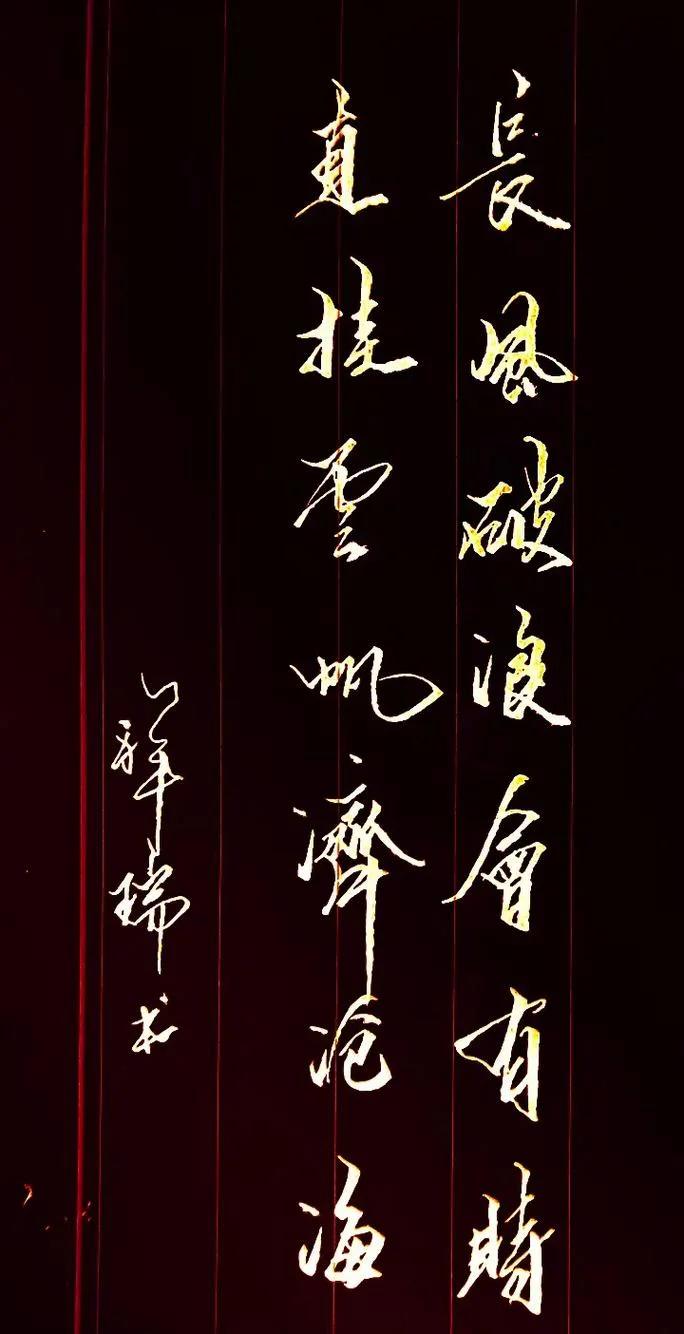 長風破浪會有時
直挂雲帆濟沧海
祥瑞书